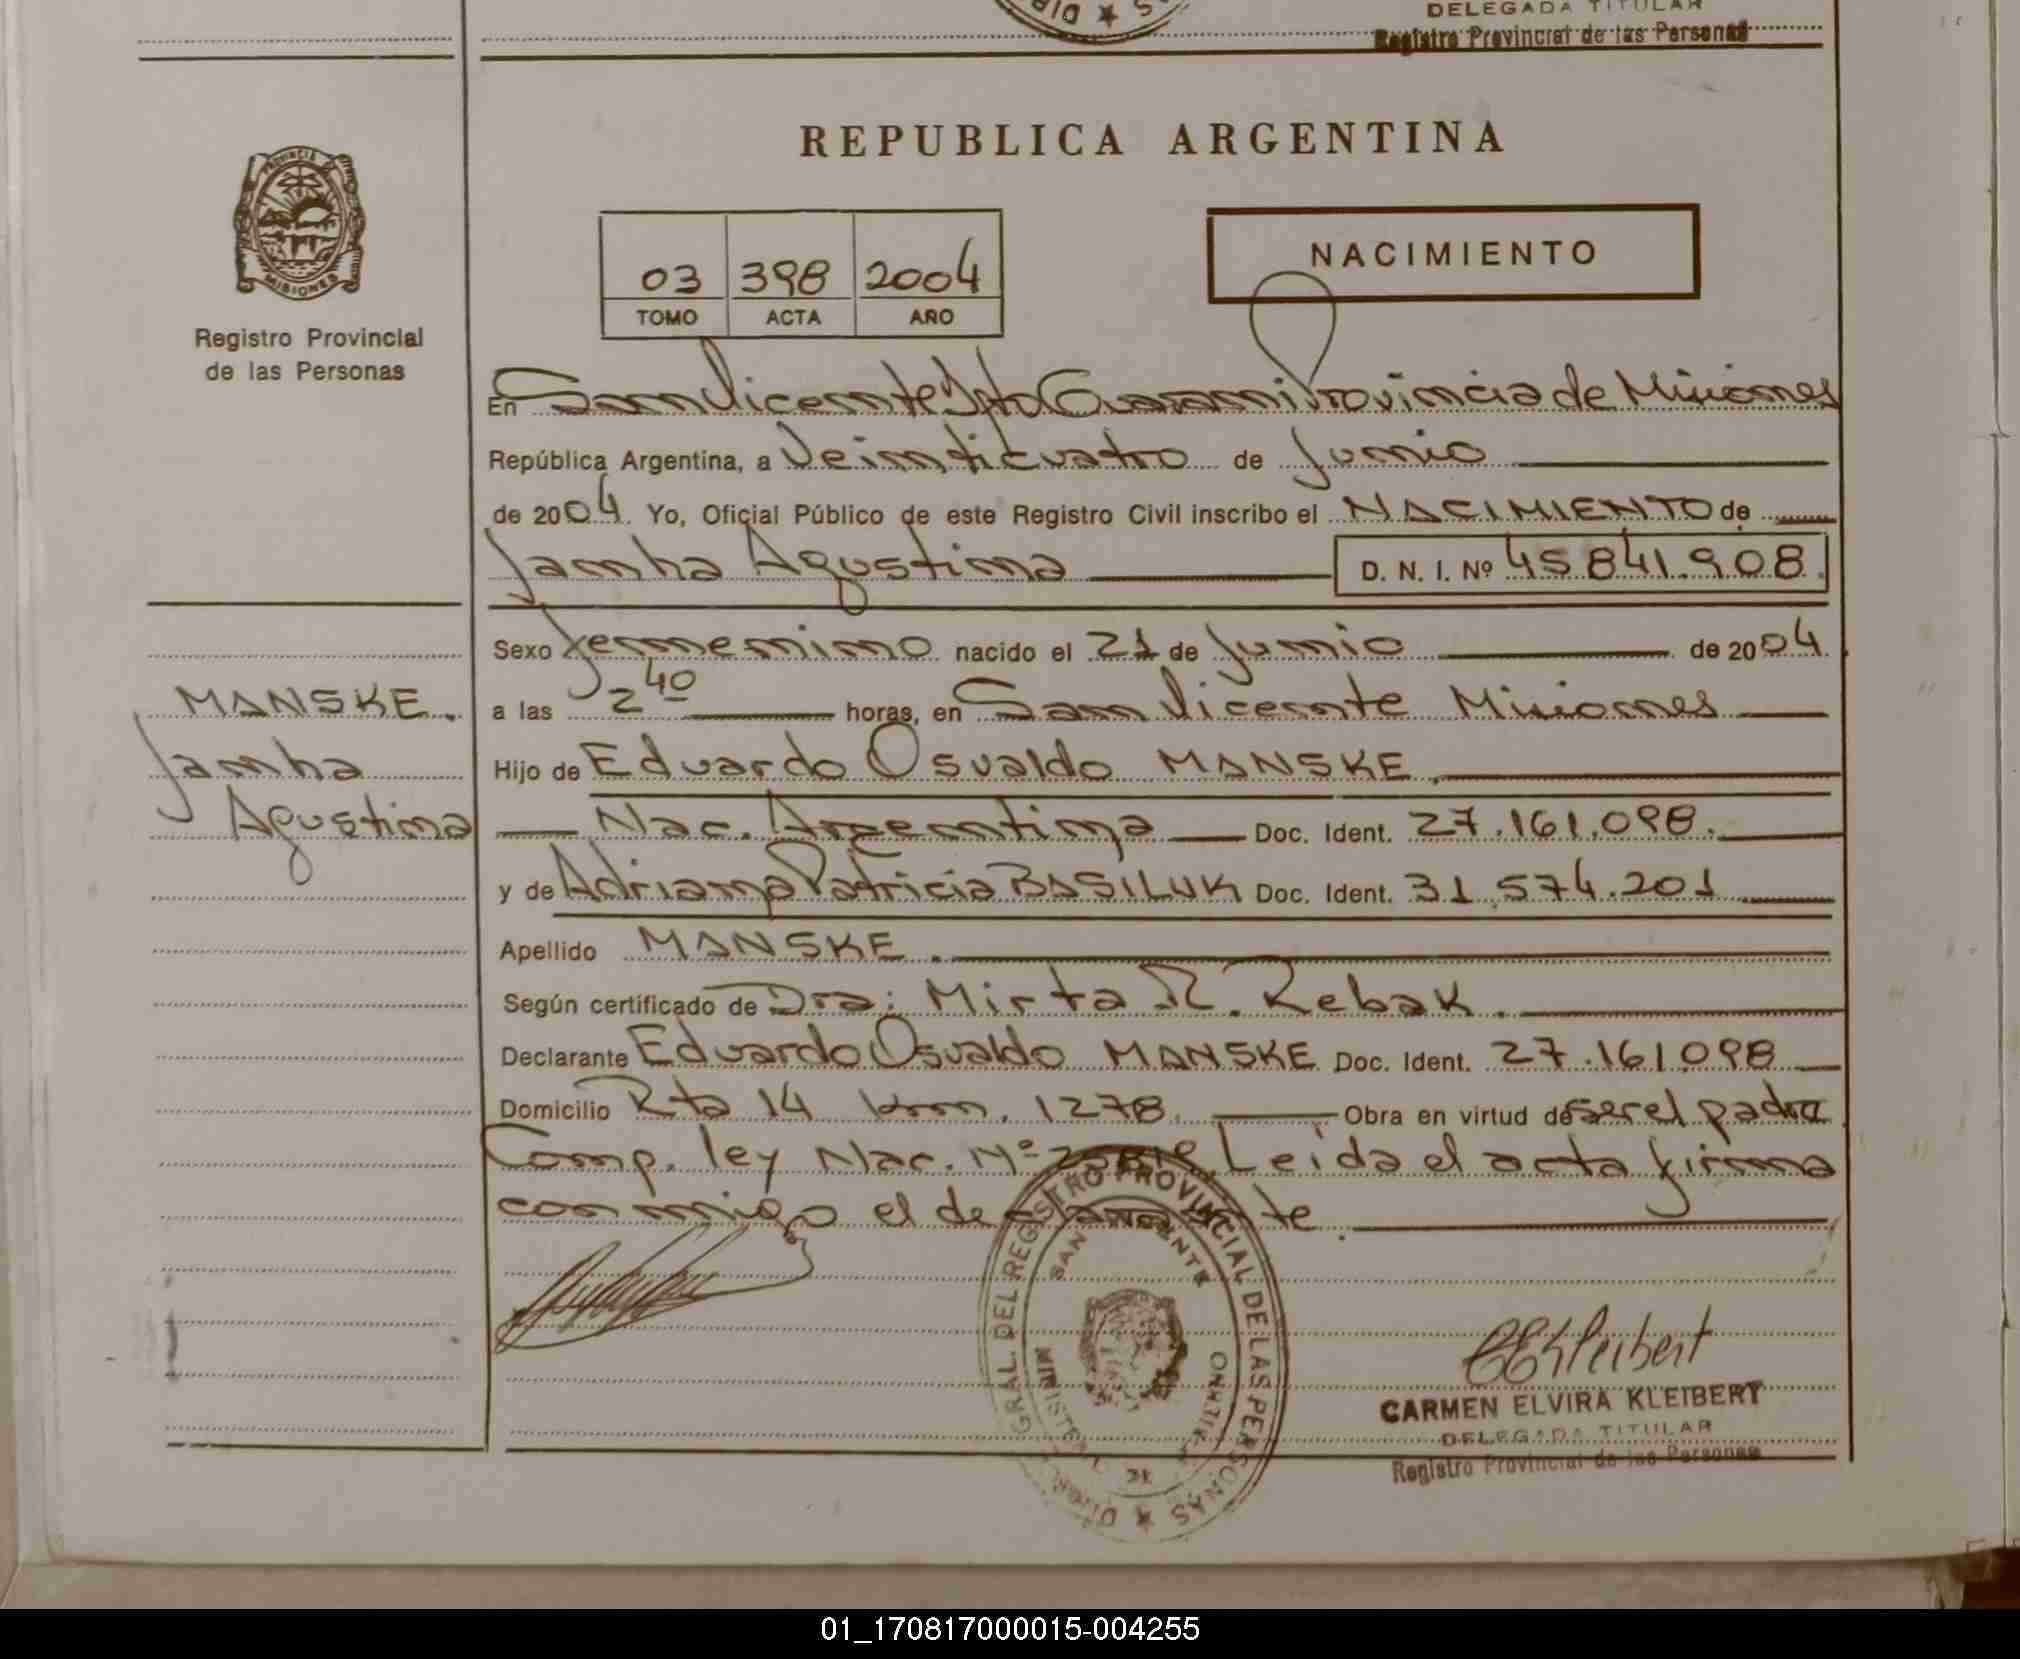 DELEGADA TITULAR
Registro Provincial de las Personas
REPUBLICA ARGENTINA
PROVINCIA DE
MISIONES
Registro Provincial
de las Personas
03 398 2004
TOMO ACTA AÑO
NACIMIENTO
En San Vicente Dpto Guarani Provincia de Misiones
República Argentina, a Veinticuatro de Junio
de 2004. Yo, Oficial Público de este Registro Civil inscribo el NACIMIENTO de
Janha Agustina D. N. I. Nº 45841.908.
Sexo femenino nacido el 21 de Junio de 2004.
a las 2 40 horas, en San Vicente Misiones
Hijo de Eduardo Osvaldo MANSKE.
Nac. Argentina Doc. Ident. 27.161.098.
y de Adriana Patricia BASILUK Doc. Ident. 31.574.201
Apellido MANSKE.
Según certificado de Dra: Mirta R. Rebak.
Declarante Eduardo Osvaldo MANSKE Doc. Ident. 27.161.098
Domicilio Rta 14 km. 1278. Obra en virtud de ser el padre
Comp. ley Nac. Nº Leida el acta firma
conmigo el declarante.
MANSKE.
Janha
Agustina
GRAL. DEL REGISTRO PROVINCIAL DE LAS PERSONAS
SAN VICENTE
CEKleibert
CARMEN ELVIRA KLEIBERT
DELEGADA TITULAR
Registro Provincial de las Personas
01_170817000015-004255